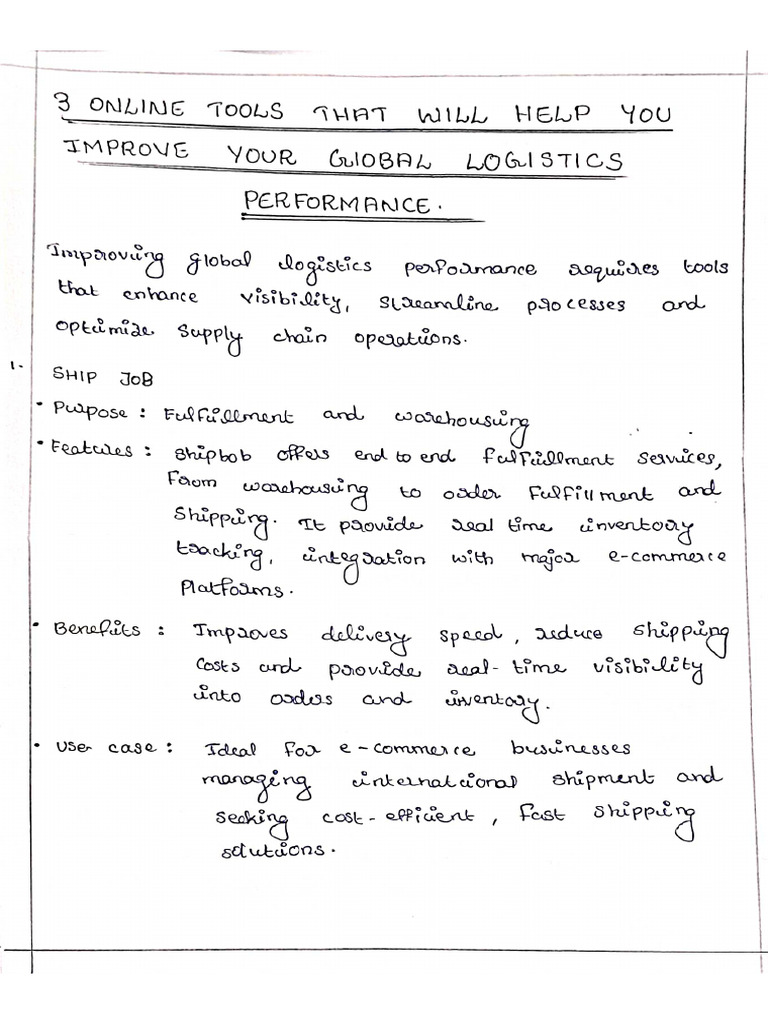 3 ONLINE TOOLS THAT WILL HELP YOU
IMPROVE YOUR GLOBAL LOGISTICS
PERFORMANCE.
Improving global logistics performance requires tools
that enhance visibility, streamline processes and
optimize supply chain operations.
1. SHIP JOB
• Purpose : Fulfillment and warehousing
• Features : shipbob offers end to end fulfillment services,
From warehousing to order fulfillment and
shipping. It provide real time inventory
tracking, integration with major e-commerce
Platforms.
• Benefits : Improves delivery speed, reduce shipping
costs and provide real-time visibility
into orders and inventory.
• User case : Ideal for e-commerce businesses
managing international shipment and
seeking cost-efficient, fast shipping
solutions.